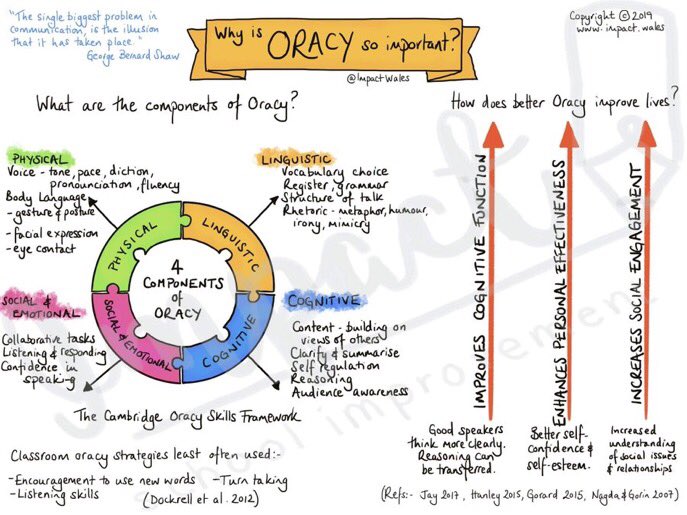 "The single biggest problem in
communication, is the illusion
that it has taken place."
George Bernard Shaw
Why is ORACY so important?
@ImpactWales
Copyright © 2019
www.impact.wales
What are the components of Oracy?
PHYSICAL
Voice - tone, pace, diction,
pronounciation, fluency
Body Language
- gesture & posture
- facial expression
- eye contact
LINGUISTIC
Vocabulary choice
Register, grammar
Structure of talk
Rhetoric - metaphor, humour,
irony, mimicry
PHYSICAL
LINGUISTIC
4
COMPONENTS
of
ORACY
SOCIAL & EMOTIONAL
COGNITIVE
SOCIAL &
EMOTIONAL
Collaborative tasks
Listening & responding
Confidence in
speaking
COGNITIVE
Content - building on
views of others
Clarify & summarise
Self regulation
Reasoning
Audience awareness
The Cambridge Oracy Skills Framework
Classroom oracy strategies least often used:-
- Encouragement to use new words - Turn taking
- Listening skills
(Dockrell et al. 2012)
How does better Oracy improve lives?
IMPROVES COGNITIVE FUNCTION
ENHANCES PERSONAL EFFECTIVENESS
INCREASES SOCIAL ENGAGEMENT
Good speakers
think more clearly.
Reasoning can
be transferred.
Better self-
confidence &
self-esteem.
Increased
understanding
of social issues
& relationships
(Refs:- Jay 2017, Hanley 2015, Gorard 2015, Nagda & Gorin 2007)
impact
school improvement